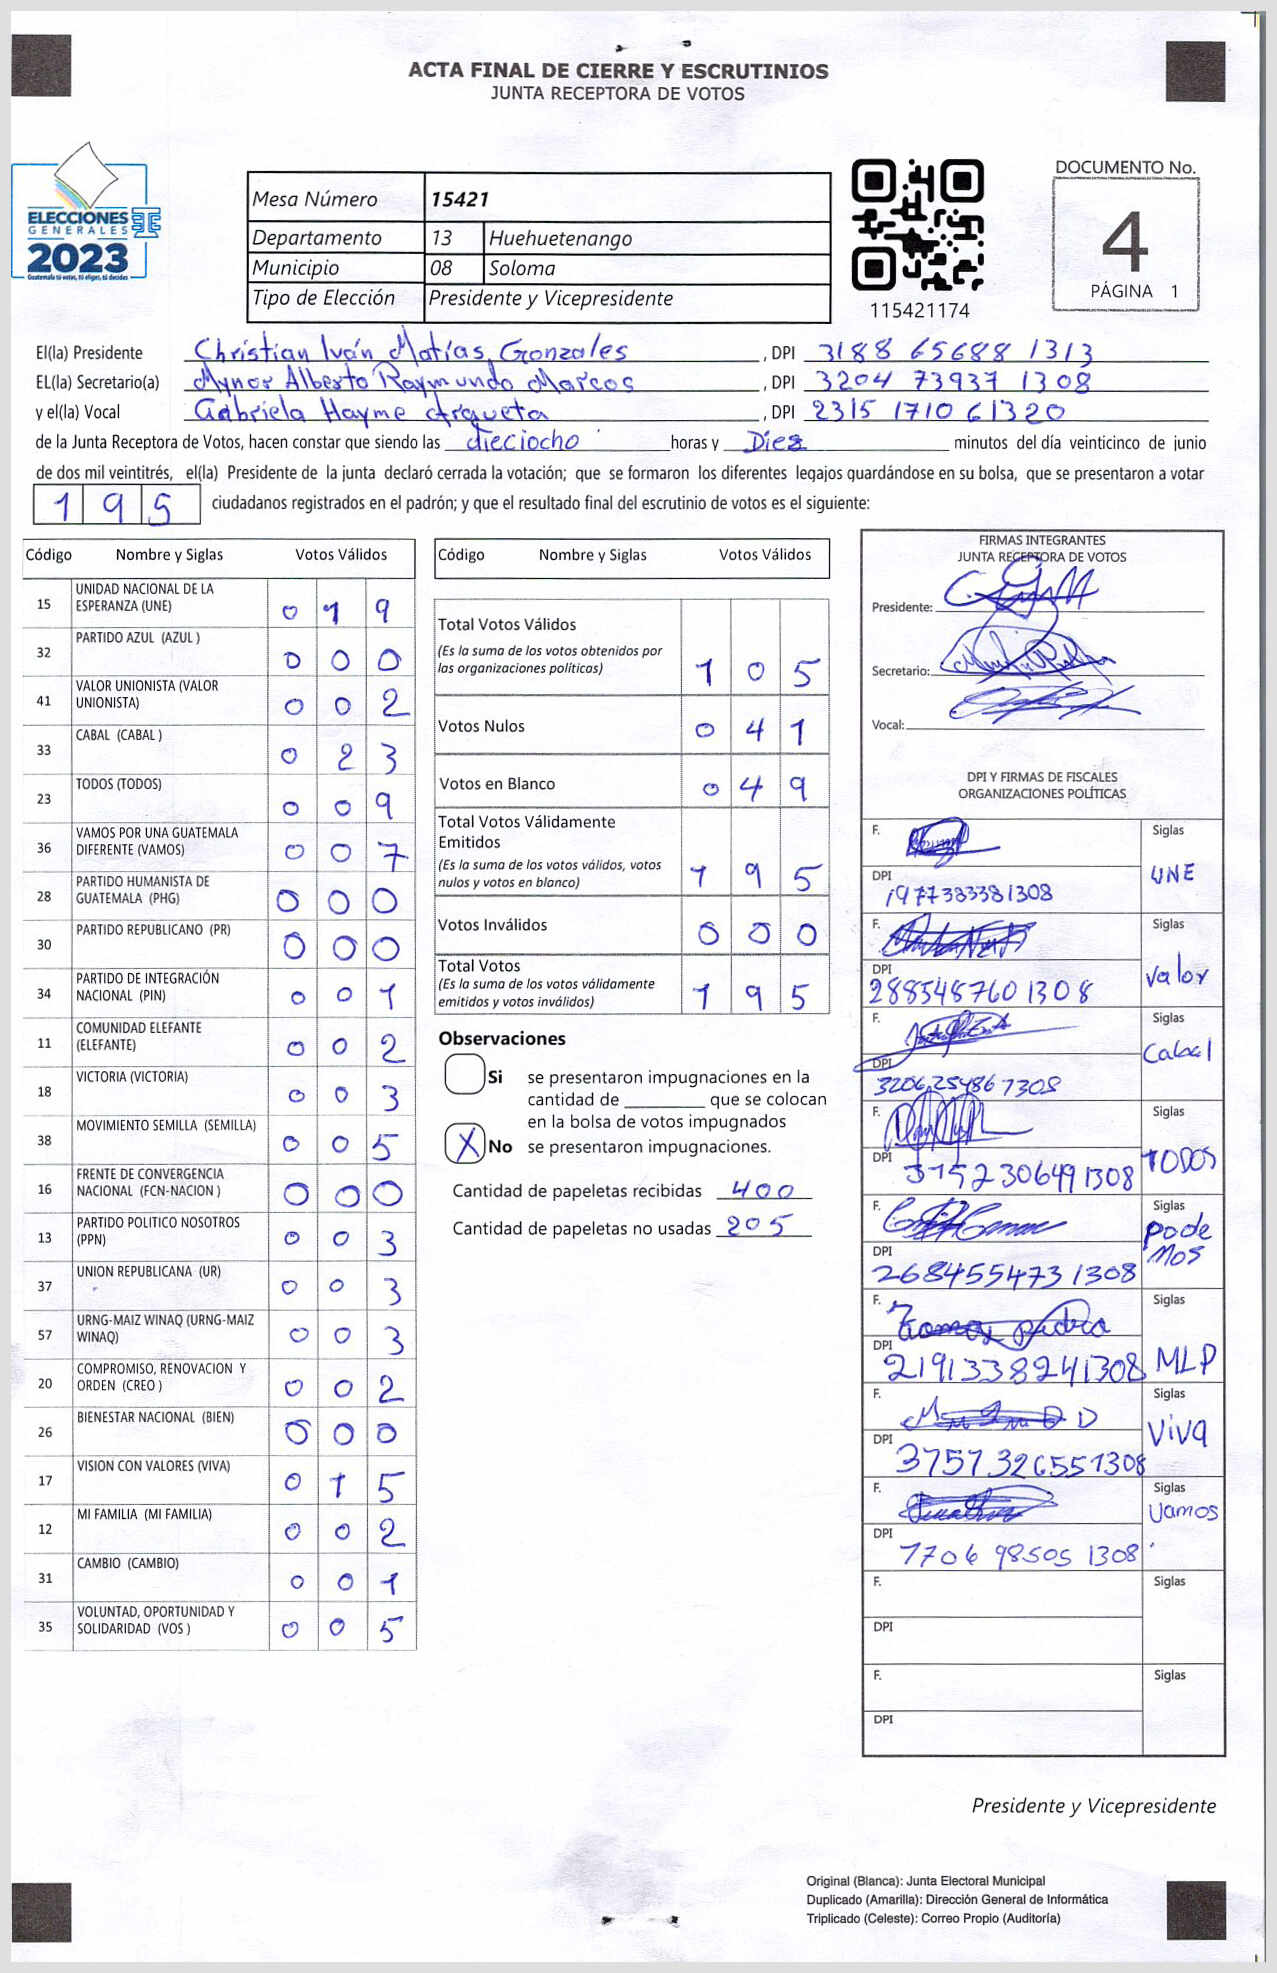 ACTA FINAL DE CIERRE Y ESCRUTINIOS
JUNTA RECEPTORA DE VOTOS
ELECCIONES
GENERALES
2023
Guatemala tú votas, tú eliges, tú decides
Mesa Número 15421
Departamento 13 Huehuetenango
Municipio 08 Soloma
Tipo de Elección Presidente y Vicepresidente
115421174
DOCUMENTO No.
4
PÁGINA 1
El(la) Presidente Christian Iván Matías Gonzales , DPI 3188 65688 1313
EL(la) Secretario(a) Mynor Alberto Raymundo Marcos , DPI 3204 73937 1308
y el(la) Vocal Gabriela Hayme Argueta , DPI 2315 1710 61320
de la Junta Receptora de Votos, hacen constar que siendo las dieciocho horas y Diez minutos del día veinticinco de junio
de dos mil veintitrés, el(la) Presidente de la junta declaró cerrada la votación; que se formaron los diferentes legajos guardándose en su bolsa, que se presentaron a votar
195 ciudadanos registrados en el padrón; y que el resultado final del escrutinio de votos es el siguiente:
Código Nombre y Siglas Votos Válidos
15 UNIDAD NACIONAL DE LA
ESPERANZA (UNE) 0 1 9
32 PARTIDO AZUL (AZUL ) 0 0 0
41 VALOR UNIONISTA (VALOR
UNIONISTA) 0 0 2
33 CABAL (CABAL ) 0 2 3
23 TODOS (TODOS) 0 0 9
36 VAMOS POR UNA GUATEMALA
DIFERENTE (VAMOS) 0 0 7
28 PARTIDO HUMANISTA DE
GUATEMALA (PHG) 0 0 0
30 PARTIDO REPUBLICANO (PR) 0 0 0
34 PARTIDO DE INTEGRACIÓN
NACIONAL (PIN) 0 0 1
11 COMUNIDAD ELEFANTE
(ELEFANTE) 0 0 2
18 VICTORIA (VICTORIA) 0 0 3
38 MOVIMIENTO SEMILLA (SEMILLA) 0 0 5
16 FRENTE DE CONVERGENCIA
NACIONAL (FCN-NACION ) 0 0 0
13 PARTIDO POLITICO NOSOTROS
(PPN) 0 0 3
37 UNION REPUBLICANA (UR) 0 0 3
57 URNG-MAIZ WINAQ (URNG-MAIZ
WINAQ) 0 0 3
20 COMPROMISO, RENOVACION Y
ORDEN (CREO ) 0 0 2
26 BIENESTAR NACIONAL (BIEN) 0 0 0
17 VISION CON VALORES (VIVA) 0 1 5
12 MI FAMILIA (MI FAMILIA) 0 0 2
31 CAMBIO (CAMBIO) 0 0 1
35 VOLUNTAD, OPORTUNIDAD Y
SOLIDARIDAD (VOS ) 0 0 5
Código Nombre y Siglas Votos Válidos
Total Votos Válidos
(Es la suma de los votos obtenidos por
las organizaciones políticas) 1 0 5
Votos Nulos 0 4 1
Votos en Blanco 0 4 9
Total Votos Válidamente
Emitidos
(Es la suma de los votos válidos, votos
nulos y votos en blanco) 1 9 5
Votos Inválidos 0 0 0
Total Votos
(Es la suma de los votos válidamente
emitidos y votos inválidos) 1 9 5
Observaciones
Si se presentaron impugnaciones en la
cantidad de ________ que se colocan
en la bolsa de votos impugnados
X No se presentaron impugnaciones.
Cantidad de papeletas recibidas 400
Cantidad de papeletas no usadas 205
FIRMAS INTEGRANTES
JUNTA RECEPTORA DE VOTOS
Presidente:
Secretario:
Vocal:
DPI Y FIRMAS DE FISCALES
ORGANIZACIONES POLÍTICAS
F. Siglas
UNE
DPI
1977383381308
F. Siglas
Valor
DPI
2885487601308
F. Siglas
Cabal
DPI
3206254867308
F. Siglas
TODOS
DPI
3152306491308
F. Siglas
Pode
Mos
DPI
2684554731308
F. Siglas
MLP
DPI
2191338241308
F. Siglas
Viva
DPI
3757326551308
F. Siglas
Vamos
DPI
1706 98505 1308
F. Siglas
DPI
F. Siglas
DPI
Presidente y Vicepresidente
Original (Blanca): Junta Electoral Municipal
Duplicado (Amarilla): Dirección General de Informática
Triplicado (Celeste): Correo Propio (Auditoría)